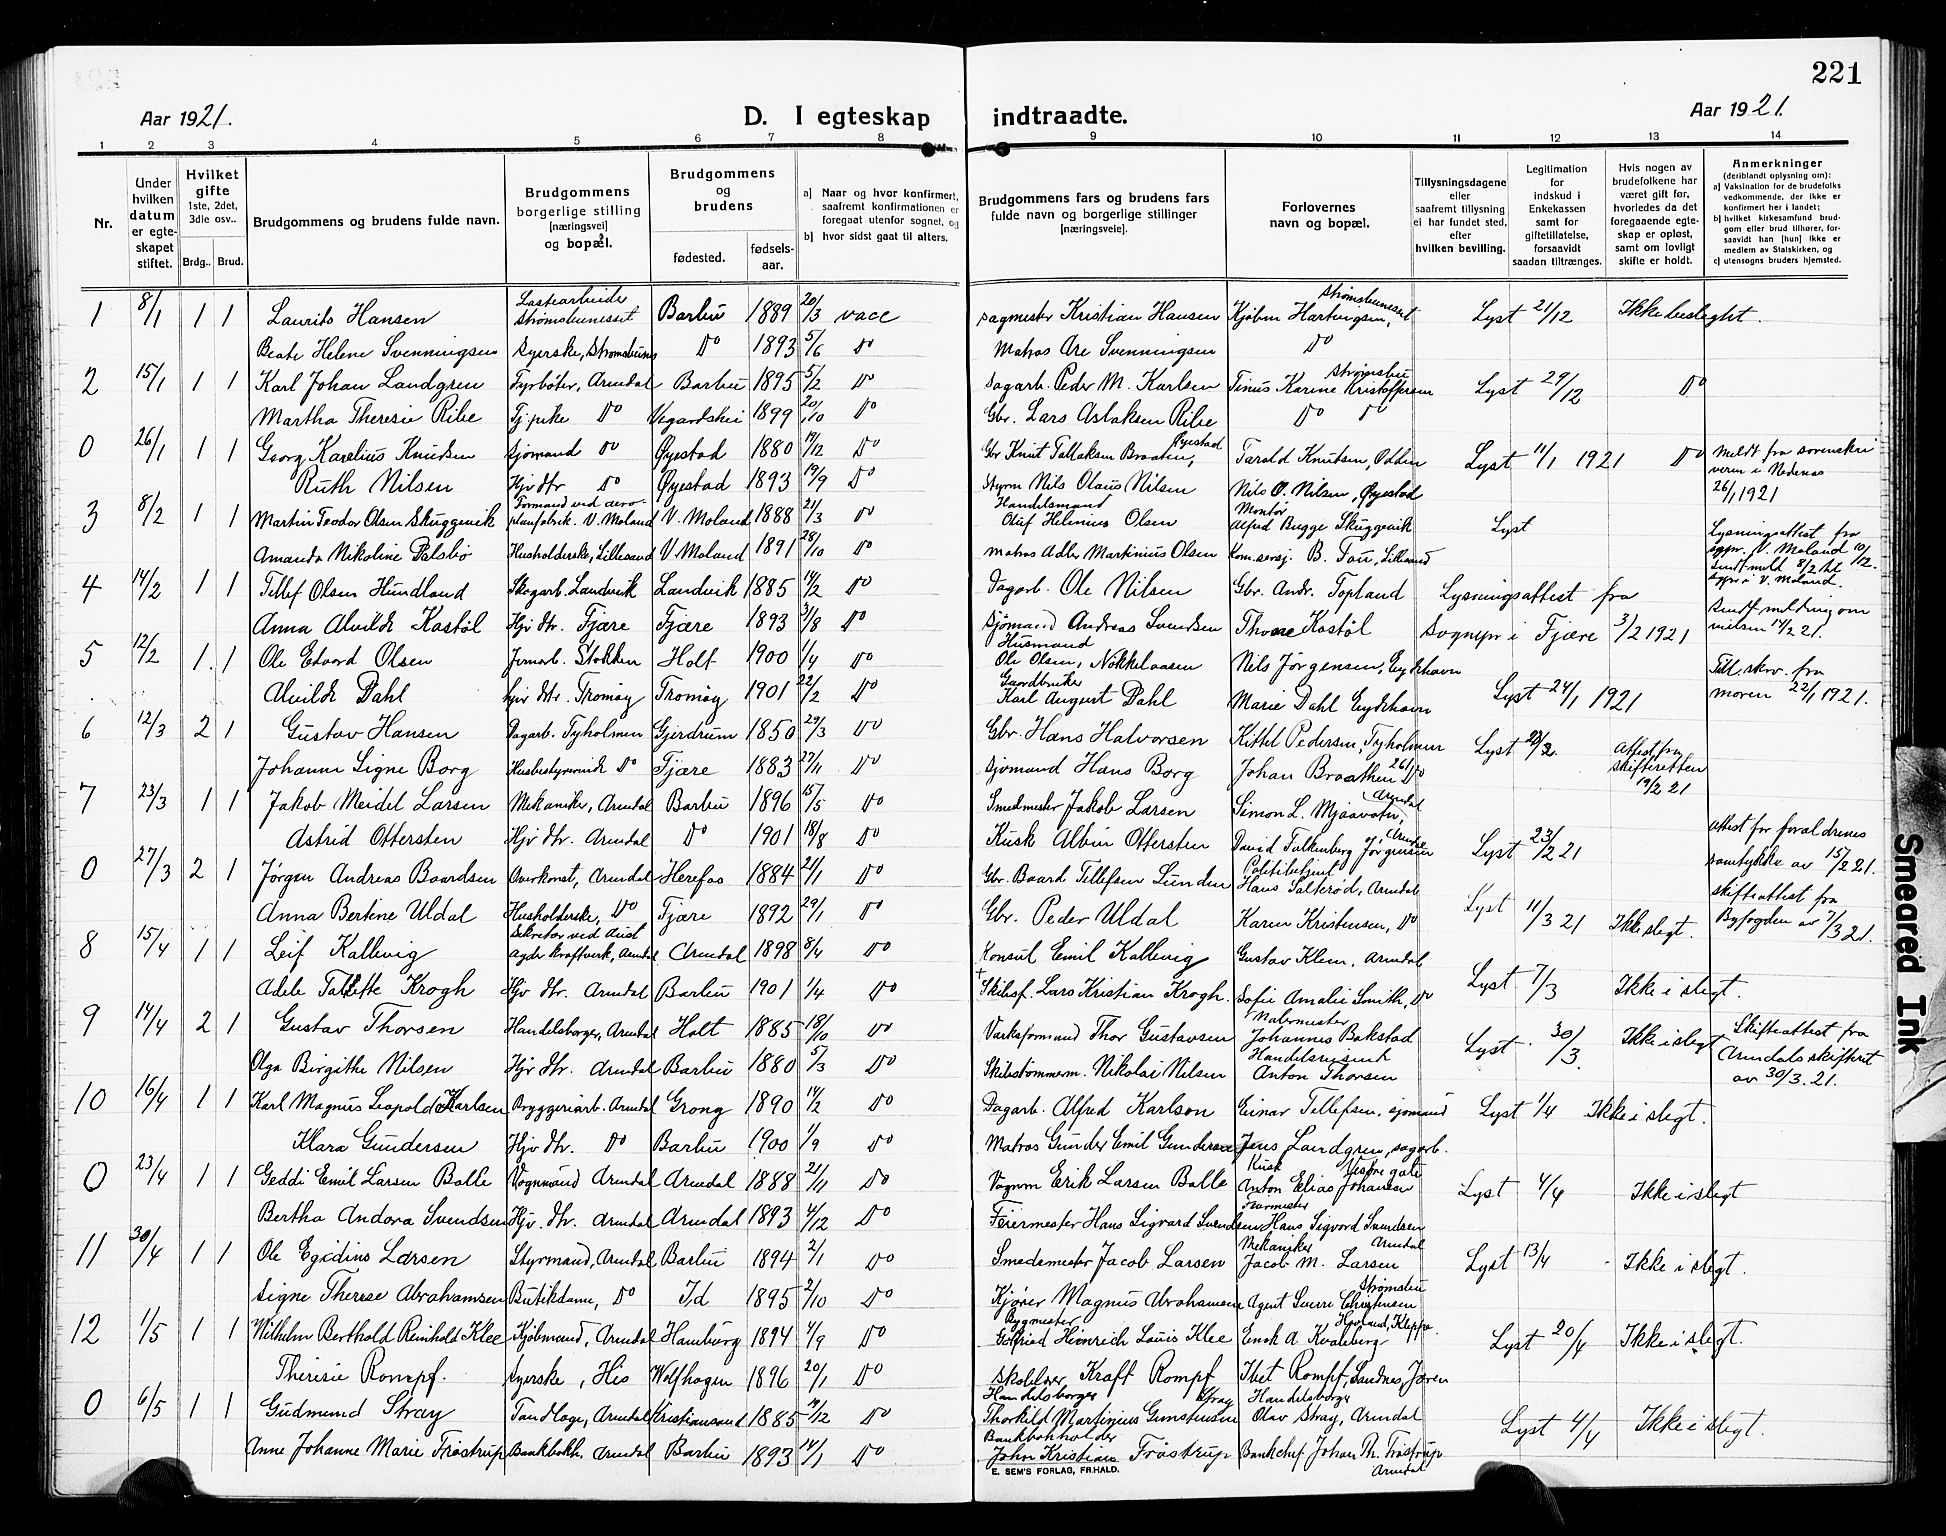 221
Aar 1921.
D. I egteskap indtraadte.
Aar 1921.
1 2 3 4 5 6 7 8 9 10 11 12 13 14
Nr.
Under hvilken datum er egteskapet stiftet.
Hvilket gifte 1ste, 2det, 3die osv..
Brdg.. Brud.
Brudgommens og brudens fulde navn.
Brudgommens borgerlige stilling [næringsvei] og bopæl.
Brudgommens og brudens
fødested. fødselsaar.
a) Naar og hvor konfirmert, saafremt konfirmationen er foregaat utenfor sognet, og
b) hvor sidst gaat til alters.
Brudgommens fars og brudens fars fulde navn og borgerlige stillinger [næringsveie].
Forlovernes navn og bopæl.
Tillysningsdagene eller saafremt tillysning ei har fundet sted, efter hvilken bevilling.
Legitimation for indskud i Enkekassen samt for giftetillatelse, forsaavidt saadan tiltrænges.
Hvis nogen av brudefolkene har været gift før, hvorledes da det foregaaende egteskap er opløst, samt om lovligt skifte er holdt.
Anmerkninger (deriblandt oplysning om):
a) Vaksination for de brudefolks vedkommende, der ikke er konfirmert her i landet;
b) hvilket kirkesamfund brudgom eller brud tilhører, forsaavidt han [hun] ikke er medlem av Statskirken, og
c) utensogns bruders hjemsted.
1 8/1 1 1 Laurits Hansen Lastearbeider Strømsbunesset Barbu 1889 20/3 vacc Sagmester Kristian Hansen Kjøbm Hartvigsen, Strømsbunesset Lyst 21/12 Ikke beslegtet.
Beate Helene Svenningsen Syerske, Strømsbunes Do 1893 5/6 Do Matros Are Svenningsen Do
2 15/1 1 1 Karl Johan Landgren Fyrbøter, Arendal Barbu 1895 5/2 Do Sagarb. Peder M. Karlsen Tinius Karine Kristoffersen Strømsbu Lyst 29/12 Do
Martha Theresie Ribe Tj.pike Do Vegardshei 1899 20/10 Do Gbr. Lars Aslaksen Ribe Do Do
0 26/1 1 1 Georg Karelius Knudsen Sjømand Do Øyestad 1880 19/12 Do Gbr Knut Tallaksen Braaten, Øyestad Tarald Knutsen, Odden Lyst 11/1 1921 Do Meldt fra sorenskriveren i Nedenes 26/1 1921
Ruth Nilsen Hjv dtr Do Øyestad 1893 19/9 Do Styrm Nils Olaus Nilsen Nils O. Nilsen, Øyestad
3 8/2 1 1 Martin Teodor Olsen Skuggevik Formand ved aeroplanfabrik. V. Moland V. Moland 1888 21/3 Do Handelsmand Oluf Helmius Olsen Montør Alfred Bugge Skuggevik Lyst Lysningsattest fra sogpr. V. Moland 10/12. Sendt meld 8/2 til sogpr i V. Moland.
Amanda Nikoline Dalsbø Husholderske, Lillesand V. Moland 1891 28/10 Do Matros Adler Martinius Olsen B. Tau, Lillesand
4 14/2 1 1 Tellef Olsen Hundland Skogarb. Landvik Landvik 1885 14/2 Do Dagarb. Ole Nilsen Gbr. Andr. Topland Lysningsattest fra Sendt melding om vielsen 14/2 21.
Anna Alvilde Kastøl Hjv dtr. Fjære Fjære 1893 31/8 Do Sjømand Andreas Svendsen Thore Kastøl sognepr i Fjære 3/2 1921
5 12/2 1. 1 Ole Edvard Olsen Jernarb. Stokken Holt 1900 1/4 Do Husmand Ole Olsen, Nökkelaasen Nils Jørgensen, Eydehavn Till. skrv. fra moren 22/1 1921.
Alvilde Dahl Hjv dtr. Tromøy Tromøy 1901 22/2 Do Gaardbruker Karl August Dahl Marie Dahl Eydehavn Lyst 24/1 1921
6 12/3 2 1 Gustav Hansen Dagarb. Tyholmen Gjerdrum 1850 29/3 Do Gbr. Hans Halvorsen Kittel Pedersen, Tyholmen Lyst 28/2. Attest fra skifteretten 19/2 21
Johanne Signe Borg Husbestyrerinde Do Fjære 1883 27/11 Do Sjømand Hans Borg Johan Braathen Do
7 23/3 1 1 Jakob Meidel Larsen Mekaniker, Arendal Barbu 1896 15/5 Do Smedmester Jakob Larsen Simon L. Mjaavatn, Arendal
Astrid Ottersten Hjv dtr. Arendal Do 1901 18/8 Do Kusk Albin Ottersten David Falkenberg Jørgensen Arendal Lyst 23/2 21 Attest for foraldrenes samtykke av 15/2 21.
0 27/3 2 1 Jørgen Andreas Baardsen Overkonst, Arendal Herefos 1884 21/1 Do Gbr. Baard Tellefsen Lunden Politibetjent Hans Salterød, Arendal Lyst 11/3 21 Ikke slegt. Skifteattest fra Byfogden av 7/3 21.
Anna Bertine Uldal Husholderske, Do Fjære 1892 29/1 Do Gbr. Peder Uldal Karen Kristensen, Do
8 15/4 1 1 Leif Kallevig Sekretær ved Aust Agder kraftverk, Arendal Arendal 1898 8/4 Do Konsul Emil Kallevig Gustav Klem, Arendal
Adele Tallette Krogh Hjv dtr. Arendal Barbu 1901 1/4 Do † Skibsf. Lars Kristian Krogh. Sofie Amalie Smith, Do Lyst 7/3 Ikke i slegt.
9 14/4 2 1 Gustav Thorsen Handelsborger, Arendal Holt 1885 18/10 Do Verksformand Thor Gustavsen Malermester Johannes Bakstad Lyst 30/3. Ikke i slegt Skifteattest fra Arendals skifteret av 30/3. 21.
Olga Birgithe Nilsen Hjv dtr. Arendal Barbu 1880 5/3 Do Skibstømmerm. Nikolai Nilsen Handelsreisende Anton Thorsen
10 16/4 1 1 Karl Magnus Leopold Karlsen Bryggeriarb. Arendal Grong 1890 14/2 Do Dagarb. Alfred Karlson Einar Tellefsen, sjømand Lyst 1/4 Ikke i slegt.
Klara Gundersen Hjv dtr. Do Barbu 1900 1/9 Do Matros Gunder Emil Gundersen Jens Landgren, sagarb.
0 23/4 1 1 Geddi Emil Larsen Balle Vognmand Arendal Arendal 1888 21/11 Do Vognm Erik Larsen Balle Kusk Anton Elias Johansen Vestre gate Lyst 4/4 Ikke i slegt
Bertha Andora Svendsen Hjv. dtr. Arendal Arendal 1893 4/12 Do Feiermester Hans Sigvard Svendsen Feiermester Hans Sigvard Svendsen Arendal
11 30/4 1 1 Ole Egidius Larsen Styrmand, Arendal Barbu 1894 2/1 Do Smedemester Jacob Larsen Mekaniker Jacob M. Larsen Lyst 13/4 Ikke i slegt.
Signe Therese Abrahamsen Butikdame, Do Id 1895 2/10 Do Kjører Magnus Abrahamsen Agent Sverre Christensen Strømsbu
12 1/5 1 1 Wilhelm Berthold Reinhold Klee Kjøbmand, Arendal Hamburg 1894 4/9 Do Bygmester Gotfried Heinrich Louis Klee Enok A. Kvaleberg Hovland, Kleppe. Lyst 20/4 Ikke i slegt.
Theresie Rompf. Syerske, His Wolfhagen 1896 20/1 Do Skolelærer Kraft Rompf Ibet Rompf, Sandnes, Jæren
0 6/5 1 1 Gudmund Stray Tandlæge, Arendal Kristianssand 1885 19/12 Do Handelsborger Thorkild Martinius Gunstensen Stray Handelsborger Olav Stray, Arendal Lyst 4/4 Ikke i slegt.
Anne Johanne Marie Frøstrup Bankbokh. Arendal Barbu 1893 14/1 Do Bankbokholder John Kristian Frøstrup Bankchef Johan Th. Frøstrup Arendal
E. SEM'S FORLAG, FR.HALD.
Smeared Ink